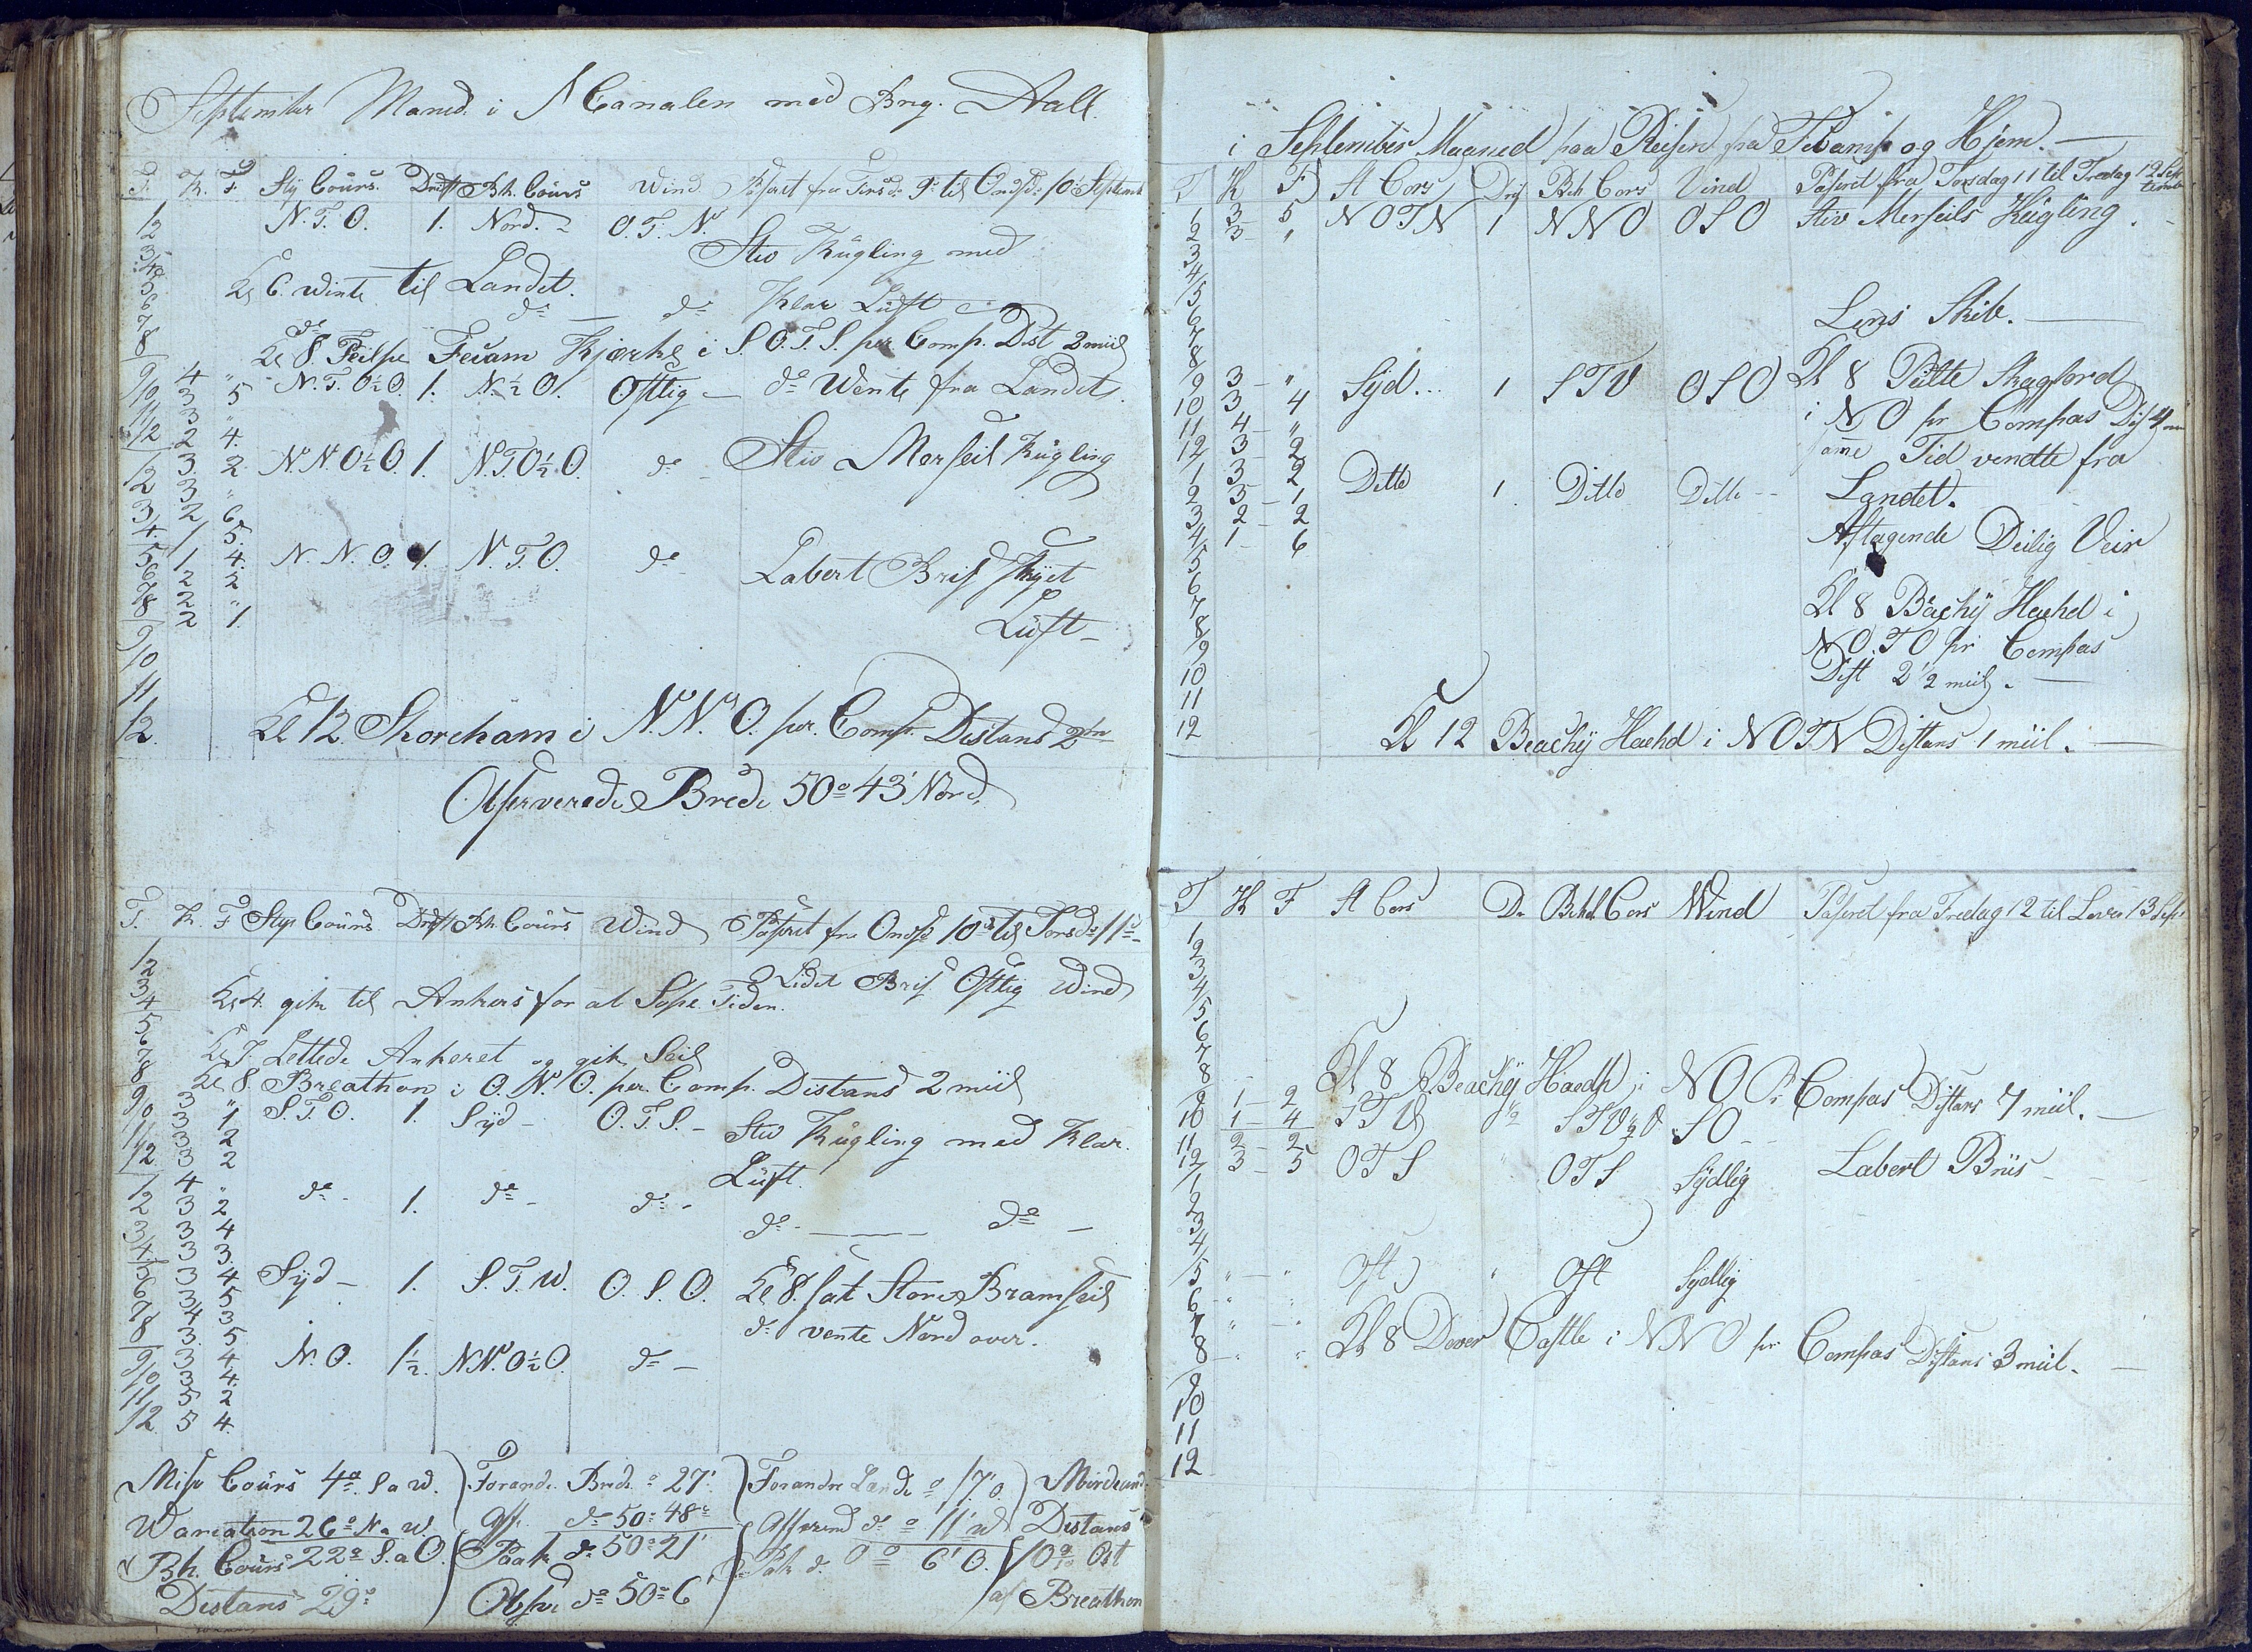 September Maned i Canalen med Brig. Aall.
T. K. F. Sty Cours. Drift Bh. Cours Wind Passeret fra Tirsd: 9de til Onsd: 10 Septemb
1 N. T. O. 1. Nord. O. T. N.
2 Stiv Kugling med
3
4
5 Kl 6. winte til Landet. do do Klar Luft
6
7
8 Kl 8. Peilse Fecam Kjerke i S. O. T. S. per Comp. Dist 2 miil
9 4 " N. T. O ½ O. 1. N. ½ O. Ostlig do Wente fra Landet.
10 3 5
11 3 "
12 2 4.
1 3. 2. N. N. O ½ O. 1. N. T. O ½ O do Stiv Merseil Kugling
2 3 "
3 2 6
4. 1 5.
5 1 4. N. N. O. 1. N. T. O. do Labert Bris Skyet
6 2 2
7 2 "
8 2 1. Luft
9
10
11
12. Kl 12. Shoreham i N. N. O. per. Comp. Distans 2 m
Observerede Brede 50° 43' Nord.
T. K. F Sty Cours Drift Bh Cours Wind Passeret fra Onsd 10de til Torsd: 11te
1
2
3 Lidet Bris Ostlig Wind
4 Kl 4. gik til Ankers for at Tiden.
5
6
7 Kl 7. Lettede Ankeret og gik Seil
8 Kl 8. Breathon i O. N. O. per. Comp. Distans 2 miil
9 3 " S. T. O. 1. Syd O. T. S. Stiv Kugling med Klar.
10 3 1
11 3 2
12. 3 2 Luft.
1 4 " do 1. do do
2 3 2 do do
3 3 4
4. 3 3.
5 3 4 Syd 1. S. T. W. O. S. O. Kl 8. sat Store Bramseil
6 3 5
7 4 3
8 3. 5 do vente Nord over.
9 3 4 N. O. 1½. N N. O ½ O. do
10 3 4.
11 5 2
12. 5 4.
Misv Cours 4° S a W. Forande Brede ° 27' Forandre Lende ° 17' O. Mindeand
Wariation 26° N a W. Aff. do 50° 48' Affarend do ° 11' W Distans
Bh. Cours 22° S. a O. Paak do 50° 21' Pak do 0° 6' O. Ost
Distans 29° Obsr. do 50° 6' af Breathon
i September Maaned paa Reisen fra Fecamp og Hjem.
T K F St Cors Drif Beh Cors Vind Paseret fra Torsdag 11 til Fredag 12 Sep
tember
1 3 5 N O T N 1 N N O O S O Stiv Merseils Kugling.
2 3 "
3
4
5
6 Lens Skib.
7
8 Kl 8
9 3 " Syd 1 S T V O S O
10 3 4 i N O pr Compas Dis 4 m
11 4 "
12 3 2 same Tid vendte fra
1 3 2 Ditto 1 Ditto Ditto Landet.
2 3 1
3 2 2
4 1 6 Aftagende Deilig Veir
5
6 Kl 8 Bachy Haehd i
7
8 N O. T O pr Compas
9
10 Dist 2 ½ miil.
11
12 Kl 12 Beachy Haehd i N O T. N Distans 1 miil.
T K F St Cors Dr Behd. Cors Wind Paseret fra Fredag 12 til Lover 13 Sep
1
2
3
4
5
6
7
8 Kl 8 Beachy Haedh i N O Pr Compas Distans 7 miil.
9 1 2 S T V ½ S T V ½ V S O
10 1 4
11 2 2
12 3 5 O T S " O T S Sydlig Labert Briis
1
2
3
4
5 " " Ost " Ost Sydlig
6 " "
7 " "
8 " " Kl 8 Dover Castle i N N O pr Compas Distans 3 miil.
9
10
11
12